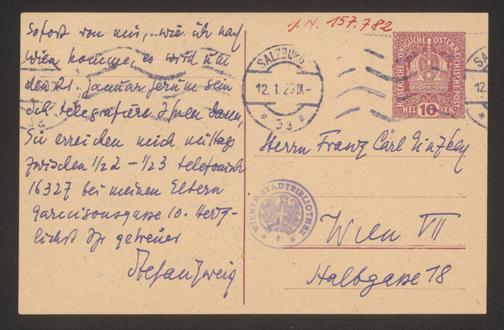 Sofort von mir, wie ich nach
Wien komme, es wird um
den 21. Januar herum sein
ich telegrafiere Ihnen dann,
Sie erreichen mich mittags
zwischen 1/22 – 1/23 telefonisch
16327 bei meinen Eltern
Garnisongasse 10. Herz-
lichst Ihr getreuer
Stefan Zweig
J. N. 157.782
SALZBURG
12. I. 2
* 3a *
KÖNIGLICHE ÖSTERREICHISCHE
10
SALZ
12. I
Herrn Franz Carl Ginzkey
WIENER STADTBIBLIOTHEK
Wien VII
Halbgasse 18